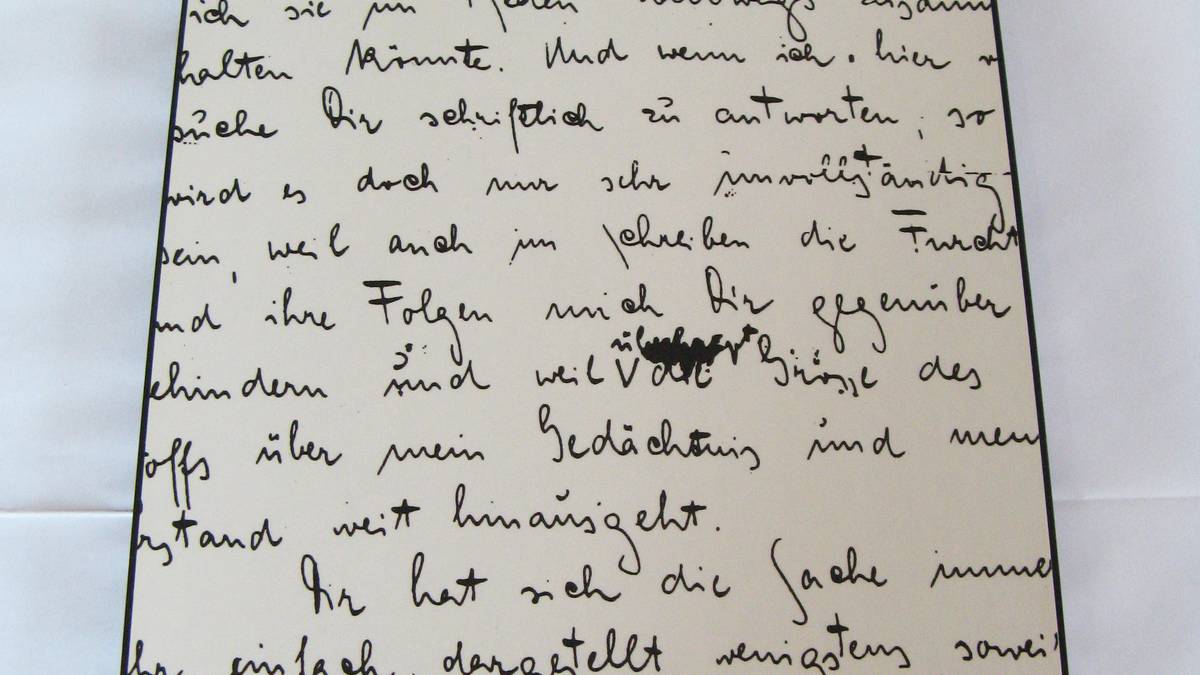 ich sie im Reden halbwegs zusamm
halten könnte. Und wenn ich hier v
suche Dir schriftlich zu antworten, so
wird es doch nur sehr unvollständig
sein, weil auch im Schreiben die Furcht
und ihre Folgen mich Dir gegenüber
ehindern und weil die Grösse des
offs über mein Gedächtnis und mein
rstand weit hinausgeht.
Dir hat sich die Sache imme
hr einfach dargestellt wenigstens sowei